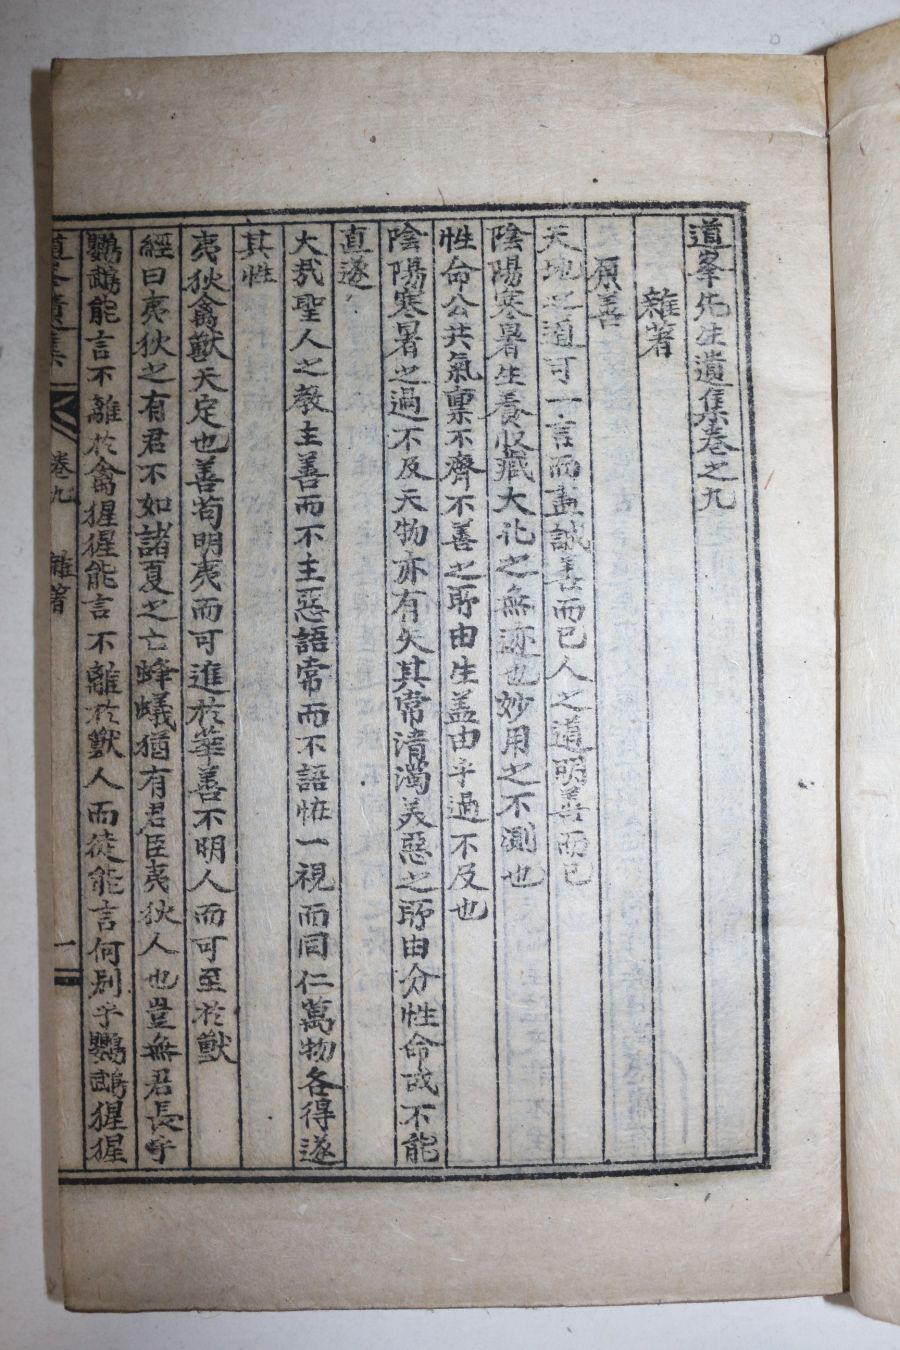 道峯先生遺集卷之九
雜著
原善
天地之道可一言而盡誠善而已人之道明善而已
陰陽寒暑生養收藏大化之無迹也妙用之不測也
性命公共氣稟不齊不善之所由生盖由乎過不及也
陰陽寒暑之過不及天物亦有失其常清濁美惡之所由分性命或不能
直遂
大哉聖人之敎主善而不主惡語常而不語恠一視而同仁萬物各得遂
其性
夷狄禽獸天定也善苟明夷而可進於華善不明人而可至於獸
經曰夷狄之有君不如諸夏之亡蜂蟻猶有君臣夷狄人也豈無君長乎
鸚鵡能言不離於禽猩猩能言不離於獸人而徒能言何別乎鸚鵡猩猩
道峯遺集 卷九 雜著 一